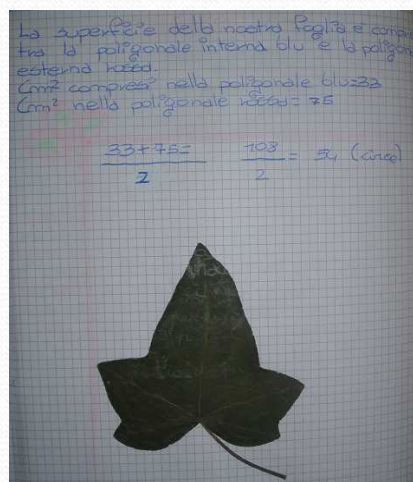 La superficie della nostra foglia è compre
tra la poligonale interna blu e la poligon
esterna rossa.
Cm² compresi nella poligonale blu=33
Cm² nella poligonale rossa= 75
33+75= 108 = 54 (circa)
2 2